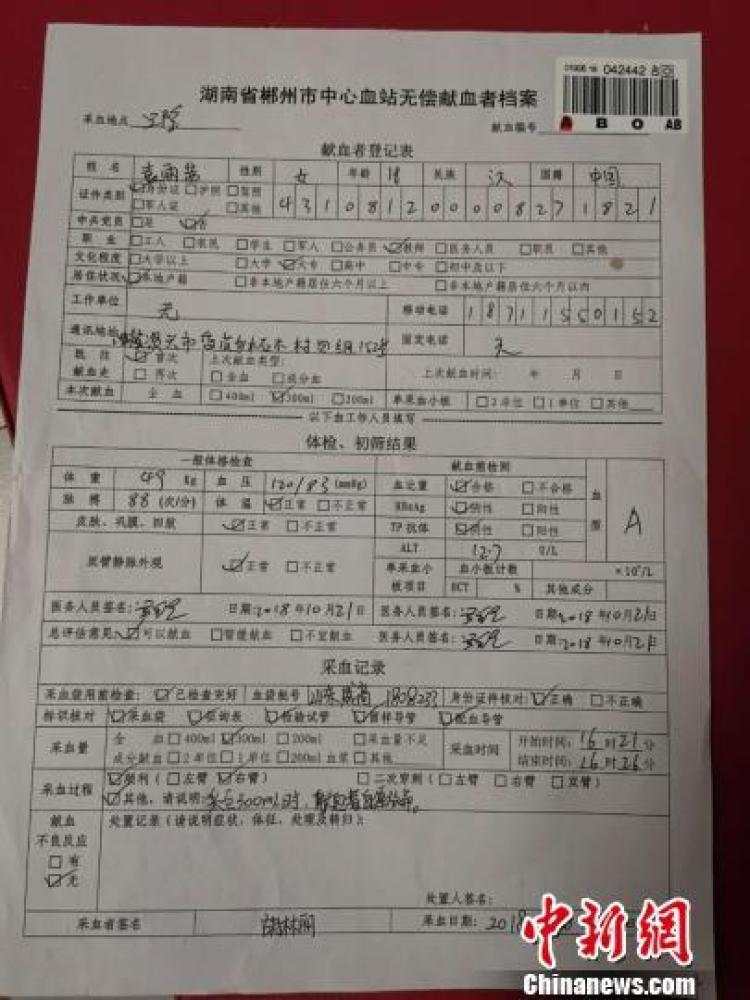 042442 8
湖南省郴州市中心血站无偿献血者档案
采血地点
献血编号 A B O AB
献血者登记表
姓名 性别 女 年龄 18 民族 汉 国籍 中国
证件类别 ☑身份证 □护照 □驾照
□军人证 □其他
中共党员 □是 ☑否
职业 □工人 □农民 □学生 □军人 □公务员 ☑教师 □医务人员 □职员 □其他
文化程度 □大学以上 □大学 ☑大专 □高中 □中专 □初中及以下
居住状况 ☑本地户籍 □非本地户籍居住六个月以上 □非本地户籍居住六个月以内
工作单位 无 移动电话
通讯地址 固定电话 无
既往献血史 ☑首次 上次献血类型: 上次献血时间: 年 月 日
□再次 □全血 □成分血
本次献血 全血 □400ml ☑300ml □200ml 单采血小板 □2单位 □1单位 □其他
以下由工作人员填写
体检、初筛结果
一般体格检查 献血前检测
体重 49 Kg 血压 120/83 (mmHg) 血比重 ☑合格 □不合格 血型 A
脉搏 88 (次/分) 体温 ☑正常 □不正常 HBsAg ☑阴性 □阳性
皮肤、巩膜、四肢 ☑正常 □不正常 TP抗体 ☑阴性 □阳性
ALT 12.7 U/L
双臂静脉外观 ☑正常 □不正常 单采血小板项目 血小板计数 ×10⁹/L
HCT % 其他成分
医务人员签名: 日期:2018年10月21日 医务人员签名: 日期:2018年10月21日
总评估意见 ☑可以献血 □暂缓献血 □不宜献血 医务人员签名: 日期:2018年10月21日
采血记录
采血袋用前检查: ☑已检查完好 血袋批号 身份证件核对 ☑正确 □不正确
标识核对 ☑采血袋 ☑征询表 ☑检验试管 ☑留样导管 ☑配血导管
采血量 全血 □400ml ☑300ml □200ml □采血量不足 采血时间 开始时间: 16时21分
成分献血 □2单位 □1单位 □200ml血浆 □其他 结束时间: 16时26分
采血过程 ☑顺利(□左臂 ☑右臂) □二次穿刺(□左臂 □右臂 □双臂)
☑其他,请说明:
献血不良反应 处置记录(请说明症状,体征,处理及转归):
□有
☑无
处置人签名:
采血者签名 采血日期: 2018
中新网
Chinanews.com